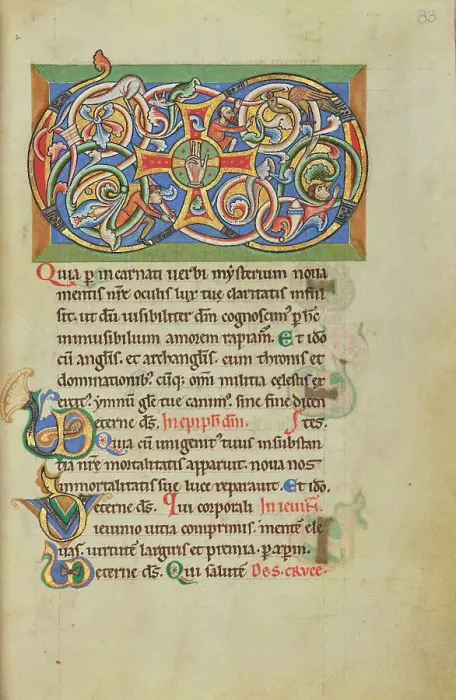 83
Quia ꝑ incarnati uerbi mẏsterium noua
mentis nr̄e oculis lux tuę claritatis inful
sit. ut dū uisibiliter dm̄ cognoscimꝰ ꝑ hc̄
inuisibilium amorem rapiamꝰ. Et ido
cū angl̄is. et archangl̄is. cum thronis et
dominationibꝰ. cūq; omī militia cęlestis ex
ercitꝰ. ẏmnū gl̄e tuę canimꝰ. sine fine dicen
VD eterne ds̄. In epiph̄ dn̄i. tes.
Quia cū unigenitꝰ tuus in substan
tia nr̄e mortalitatis apparuit. noua nos
immortalitatis suę luce reparauit. Et ido.
V eterne ds̄. Qui corporali In ieiun̄.
ieiunio uitia comprimis. mentē ele
uas. uirtutē largiris et premia. ꝑ xp̄m.
VD eterne ds̄. Qui salutē De s. cruce.